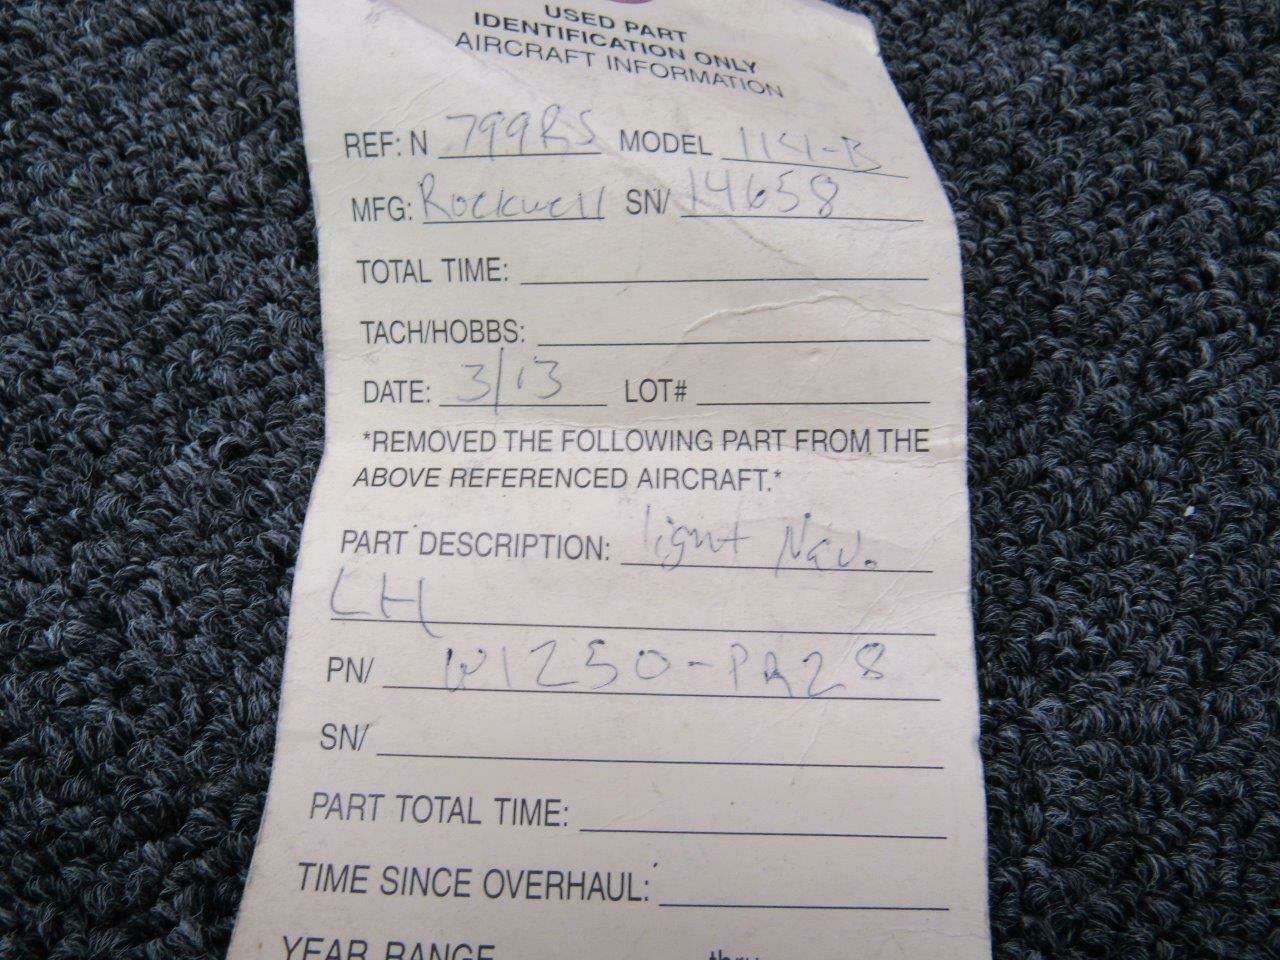 USED PART
IDENTIFICATION ONLY
AIRCRAFT INFORMATION
REF: N 799RS MODEL
MFG: Rockwell SN/ 14658
TOTAL TIME:
TACH/HOBBS:
DATE: 3/13 LOT#
*REMOVED THE FOLLOWING PART FROM THE
ABOVE REFERENCED AIRCRAFT.*
PART DESCRIPTION: light Nav.
LH
PN/ W1250-PR28
SN/
PART TOTAL TIME:
TIME SINCE OVERHAUL:
YEAR RANGE thru